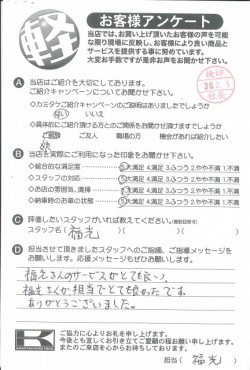 軽
お客様アンケート
当店では、お買い上げ頂いたお客様の声を可能
な限り現場に反映し、お客様により良い商品と
サービスを提供する事に努めています。
大変お手数ですが是非お声をお聞かせ下さい。
検印
A 当店はご紹介を大切にしております。
ご紹介キャンペーンについてお聞かせ下さい。
◇カミタケご紹介キャンペーンのご説明はありましたでしょうか
はい いいえ
◇具体的にご紹介頂ける方とのご関係をお聞かせ頂けますでしょうか
ご親戚 ご友人 職場の方 機会があれば紹介したい
B 当店を実際にご利用になった印象をお聞かせ下さい。
・総合的な満足度 5大満足 4.満足 3.ふつう 2.やや不満 1.不満
・スタッフの対応 5大満足 4.満足 3.ふつう 2.やや不満 1.不満
・お店の雰囲気、清掃 5大満足 4.満足 3.ふつう 2.やや不満 1.不満
・納車時のお車の状態 5大満足 4.満足 3.ふつう 2.やや不満 1.不満
C 評価したいスタッフがいれば教えてください。
スタッフ名( 福光 )
D 担当させて頂きましたスタッフへのご指摘、ご指導メッセージを
お願いします。応援メッセージもぜひお願いします。
福光さんのサービスがとても良く、
福光さんが担当でとても良かったです。
ありがとうございました。
K
ご協力に心よりお礼を申し上げます。
今後とも宜しくお引き立てご愛顧の程お願い申し上げます。
またのご来店を心からお待ちしております。
担当( 福光 )